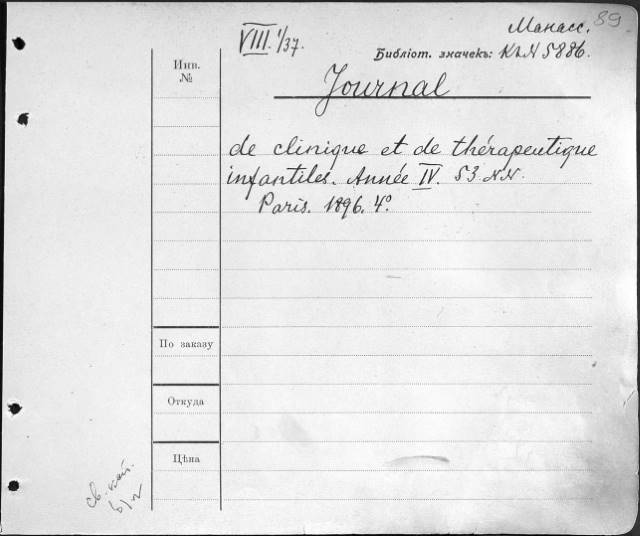 Манасс. 89
VIII. 1/37.
Библіот. значекъ: К.N 5886.
Инв.
№
Journal
de clinique et de thérapeutique
infantiles. Année IV. 53 NN.
Paris. 1896. 4º
По заказу
Откуда
Цѣна
св. кат.